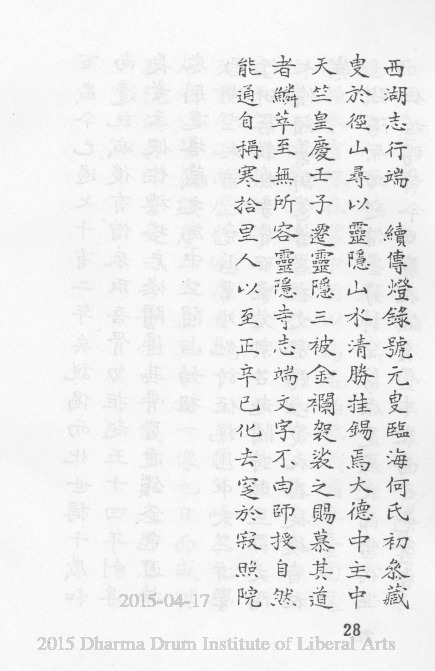 西湖志行端　續傳燈錄號元叟臨海何氏初叅藏
叟於徑山尋以靈隱山水清勝挂錫焉大德中主中
天竺皇慶壬子遷靈隱三被金襴袈裟之賜慕其道
者鱗萃至無所容靈隱寺志端文字不由師授自然
能通自稱寒拾里人以至正辛巳化去窆於寂照院
28
2015-04-17
2015 Dharma Drum Institute of Liberal Arts